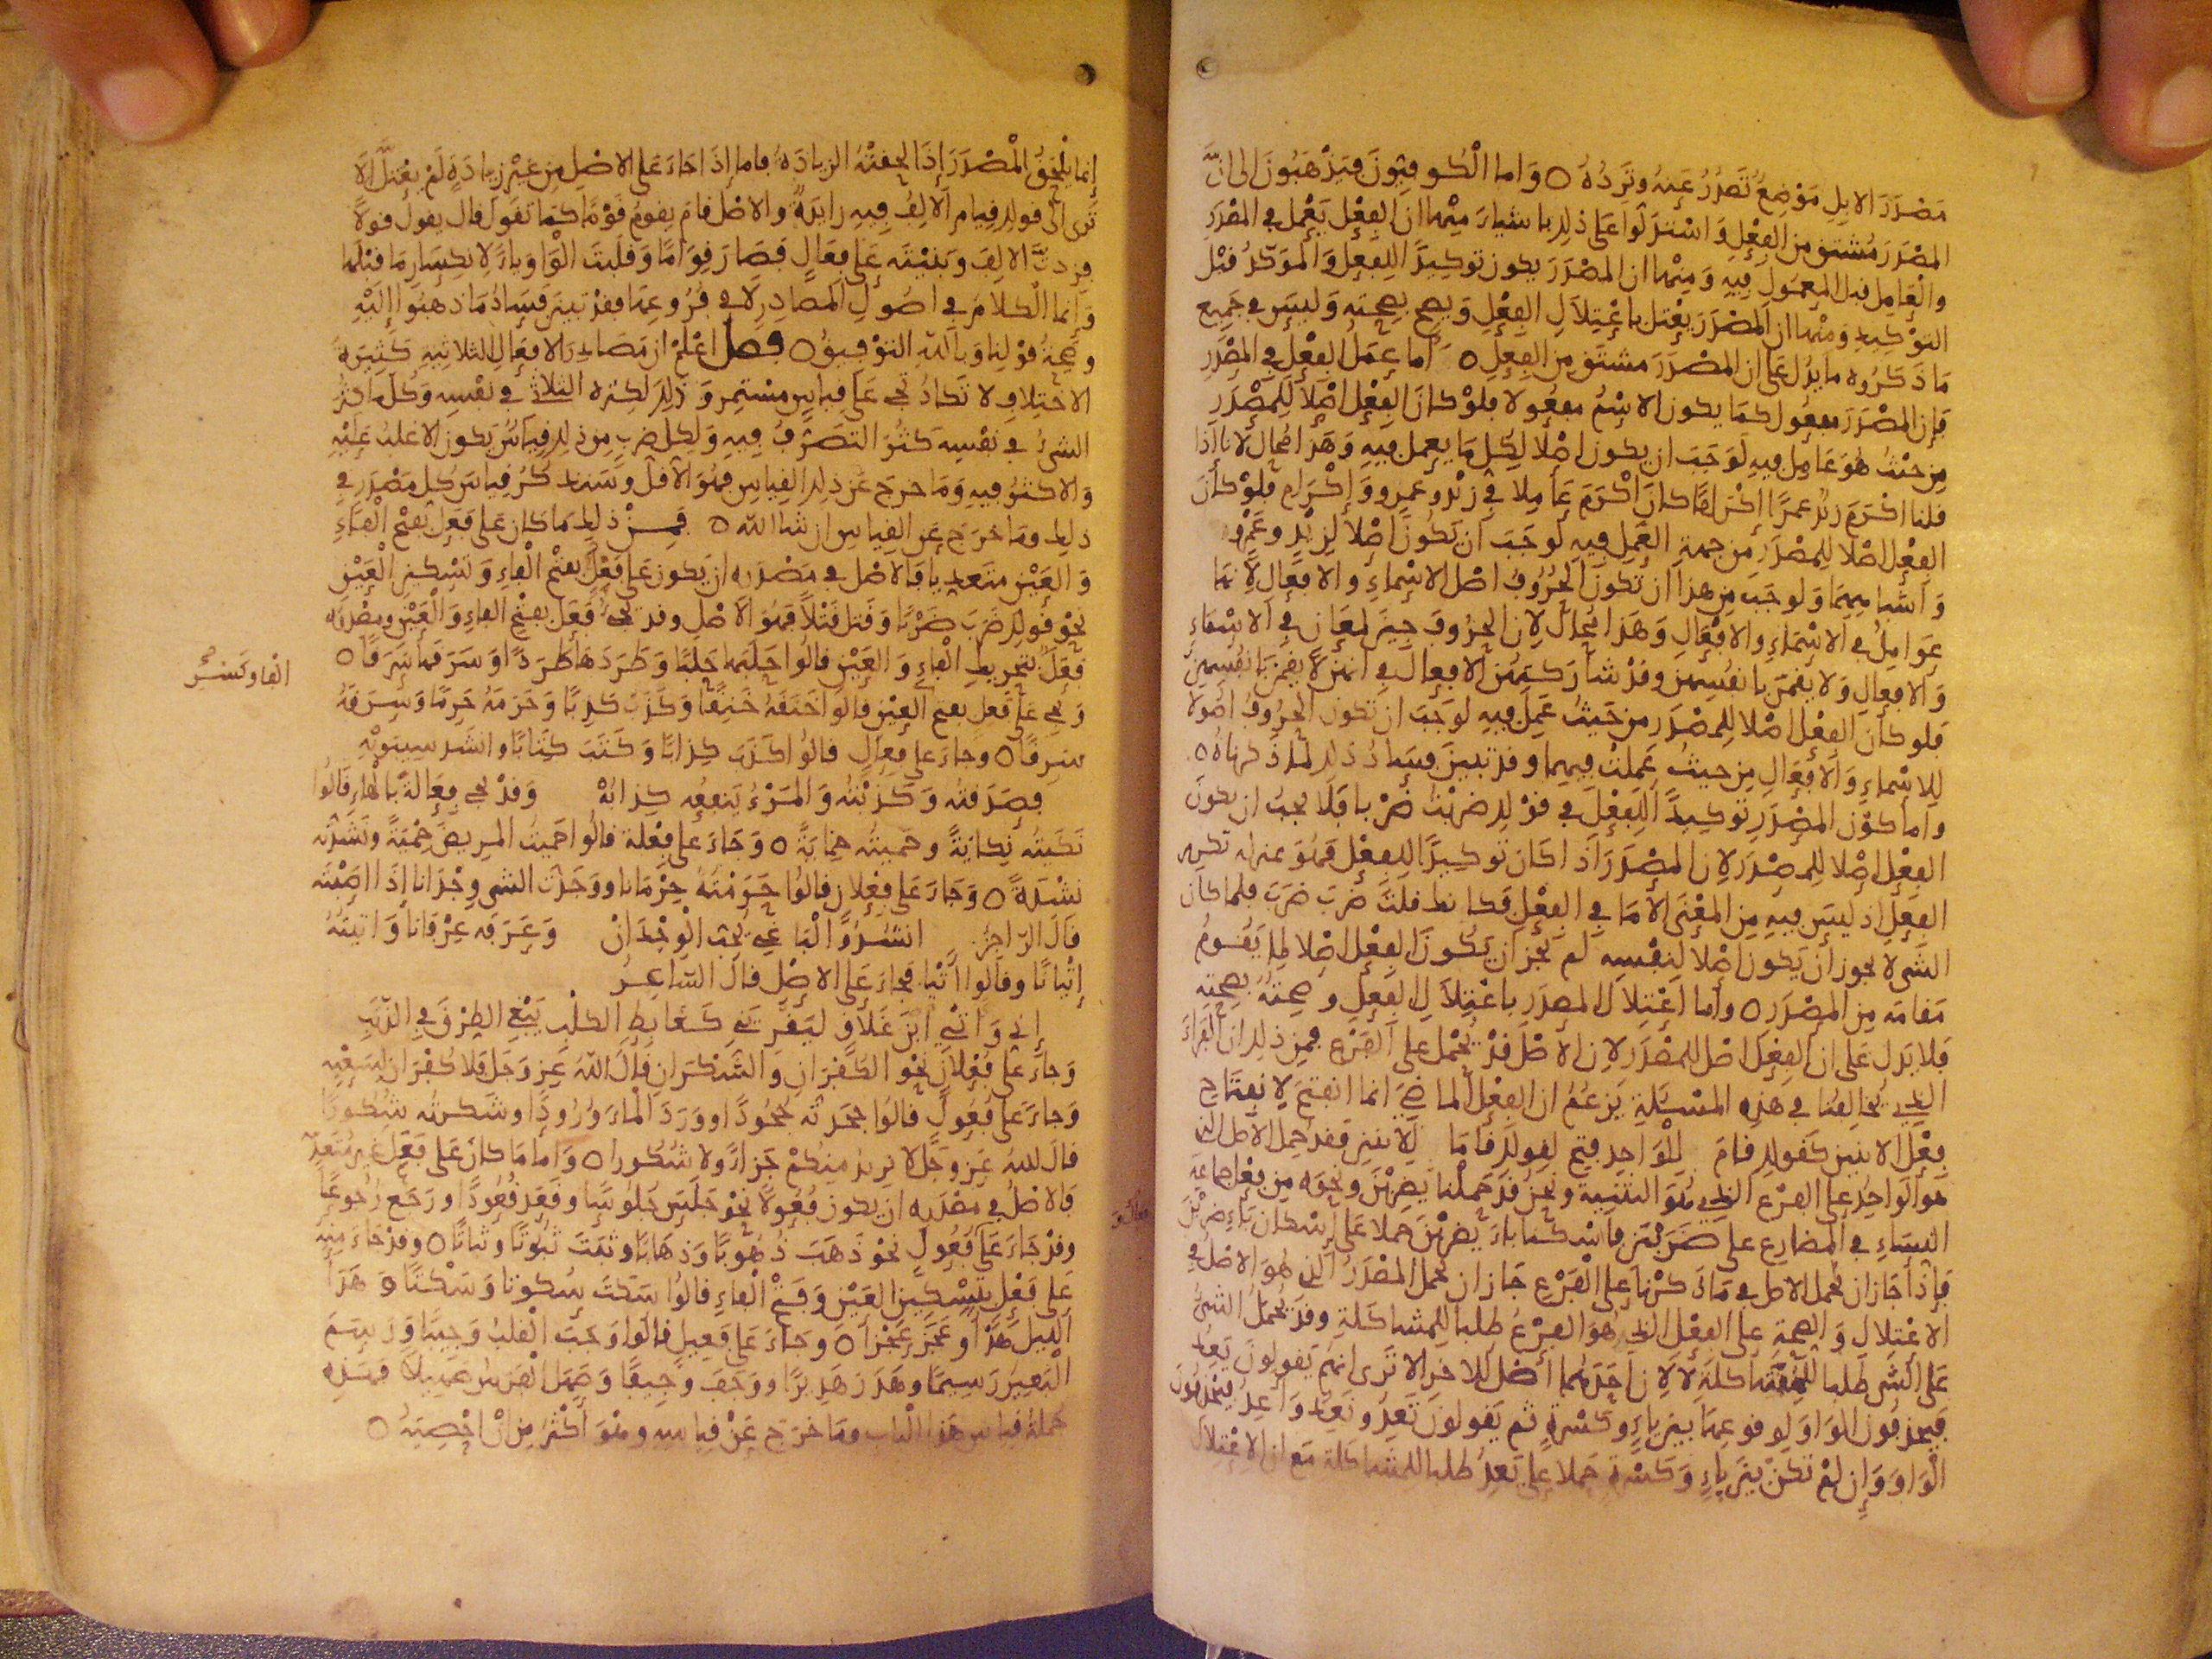 مَصْدَرَ الابِلِ مَوْضِعٌ تَصْدُرُ عَنْهُ وتَرِدُهُ ٥ وَاما الْكُوفِيُّونَ فيَذْهَبُونَ الى انَّ
المصْدَرَ مُشتق من الفِعْلِ وَاسْتدَلّوا عَلى ذلك باشياءَ مِنْها ان الفِعْل يَعْمل في المصْدَرِ
والْعامِل قبل المعمُولِ فِيهِ وَمِنْها ان المصْدَرَ يكون توكيدًا للفِعلِ وَالموَكَّدُ قبْل
التوْكِيدِ ومنْها ان المصْدَرَ يعْتل باعْتِلاَلِ الفِعْلِ وَيصح بصِحتِه وَليسَ في جَمِيع
مَا ذَكَرُوه ما يدُل عَلى ان المصْدَرَ مشتَق من الفِعِلِ ٥ اما عِمَلُ الفِعْلِ في المصْدَرِ
فإن المصْدَرَ مفعُول كمَا يكون الاسْمُ مفعُولا فلوْ كانَ الفِعْل اصْلاً لِلمصْدَرِ
مِن حيْثُ هُوَ عَامِل فيهِ لَوَجَبَ ان يكون اصْلا لِكلِّ مَا يعمل فيهِ وَهَذا مُحال لانا اذا
قلنا اكْرَمَ زيْدٌ عمرًا إكْرَامًا كانَ أكْرَمَ عَامِلا في زيْدٍ وعمرو وَإكْرَامٍ فلوْ كانَ
الفِعْل اصْلا لِلمصْدَرِ مِن جهةِ العَمِل فِيهِ لَوَجَبَ ان يَكُونَ اصْلاً لِزيْدٍ وعَمْرٍو
وَاشبَاهِهِمَا وَلوجَبَ مِن هذا ان تكونَ الحُرُوفُ اصْل الاسْمَاءِ والافعَالِ لانها
عَوامِلُ في الاسْمَاءِ والافْعَالِ وَهَذا مُحالٌ لان الحرُوفَ جِيءَ لمعَانٍ فِي الاسْمَاءِ
وَالافعِال وَلا يقمْنَ بانفُسِهن وقدْ شارَكتهُن الافعِالُ في انهن لا يقمْنَ بانفُسِهن
فلو كان الفِعْل اصْلا لِلمصْدَرِ من حَيثُ عَمِلَ فيهِ لوَجَبَ ان تكون الحرُوفُ اصُولا
لِلاسْماءِ وَالافعَالِ مِن حيثُ عَمِلتْ فيهِما وقد تبيّنَ فسَادُ ذلك لما ذكرناهُ ٥
واما كوْن المصْدَرِ توكيدًا لِلفِعْلِ في قوْلك ضربْتُ ضَرْبا فَلا يجبُ ان يكونَ
الفِعْل اصْلا لِلمصْدَرِ لان المصْدَرَ اذا كانَ توكيدًا لِلفعْلِ فَهُوَ بمنزلة تكرير
الفِعْلِ اذ ليسَ فيهِ مِن المعْنَى الا مَا فِي الفِعْلِ فكانك قلتَ ضربَ ضرَبَ فلما كانَ
الشي لا يجوز ان يَكون اصْلا لِنفْسِه لم يجز ان يَكُونَ الفِعْل اصْلا لما يَقُومُ
مَقامَه مِن المصْدَرِ ٥ واما اعْتِلاَل المصدَرِ باعْتِلاَلِ الفِعِلِ وصِحتُهُ بصِحتِه
فلا يَدل عَلى ان الفِعْل اصْل للمصْدَرِ لان الاصْلَ قدْ يُحْمل على الفَرْع فمن ذلك ان الفَرَّاءَ
الذي يخالِفُنا في هذِه المسْئلةِ يَزعُمُ ان الفِعْل الماضي انما انفتحَ لانفِتَاحِ
فِعْل الاثنين كقولك قامَ لِلْوَاحِدِ فتح لقولك قامَا لِلاثنين فقد حمل الاصل الذي
هوَ الوَاحِدُ على الفرْع الذي هُوَ التثنِية ونحنُ قدْ حَملْنا يَضربْنَ ونحوَه مِن فِعْل جماعَة
النِسَاءِ في المضارِعِ على ضَرَبْنَ فاسْكنا باءَ يضربْنَ حملا عَلى إسْكان باءِ ضربْنَ
فإذا جَازَ ان يحمل الاصل في مَا ذكرْنا على الفَرْعِ جَازَ ان يُحمل المصْدَرُ الذي هُوَ الاصْلُ في
الاعْتِلالِ وَالصحةِ على الفِعْل الذي هُوَ الفرْعُ طلبا لِلمشاكَلَةِ وقد يُحمَلُ الشيُ
عَلى الشي طَلبا لِلْمشاكلةِ لا لان احَدَهُما اصْل لِلاخَرِ الا تَرى انهُم يَقولونَ يَعِدُ
فيحذفُون الوَاوَ لِوقوعِهَا بينَ ياءٍ وَكسْرةٍ ثم يَقولون تَعِدُ ونَعِدُ وَاعِدُ فيحذِفُونَ
الْوَاوَ وَإن لمْ تكنْ بينَ ياءٍ وَكَسْرةٍ حَملا على يَعِدُ طلبا لِلمشاكلةِ مَع ان الاعْتِلالَ
إنما يَلْحَقُ المصْدَرَ إذَا لحِقتْهُ الزيادَةُ فاما إذَا جَاءَ عَلى الاصْلِ مِن غيْرِ زيادَةٍ لَمْ يعْتلّ الا
تَرى الى قولك قِيام الالِفُ فِيهِ زايدةٌ والاصْلُ قامَ يقومُ قَوْمًا كمَا تَقولُ قال يقول قولاً
فزِدتَ الالِفَ وَبَنيْتَه عَلى فِعَالٍ فصَارَ قِوَامًا وَقلِبَتَ الْوَاوُ يَاءً لانكِسَارِ مَا قبْلَها
وَإنما الْكلامُ في اصُولِ المصَادِرِ لا في فُرُوعِهَا فقدْ تبيّنَ فَسَادُ مَا ذهَبُوا إليْهِ
وصِحةُ قوْلِنا وَبالله التوْفِيقُ ٥ فصل اعْلمْ ان مَصَادِرَ الافعَالِ الثلاثيةِ كَثِيرَة
الاختِلافِ لا تَكادُ تجي عَلى قِياسٍ مسْتمِرٍ وَذلك لِكثرة الثلاثي في نفسِه وَكلّما كثُر
الشيُ في نفْسِه كَثُرَ التصَرُّفُ فِيهِ وَلِكل ضربٍ مِن ذلك قِياسٌ يَكون الاغلبُ عَلَيْهِ
وَالاكثرُ فيهِ وَمَا خرجَ عَن ذلك القياسِ فهُوَ الاقل وسَنذكُرُ قياسَ كل مصْدَرٍ في
ذلك ومَا خرَجَ عَن القِياسِ ان شا الله ٥ فمِـــن ذلك مَا كان عَلى فَعَل بفتح الفاءِ
وَالعَيْن متَعدّيا فالاصْل في مَصْدَرِه ان يكون عَلى فَعْلٍ بفتْح الفاءِ وَتسْكين العَيْنِ
نحْو قوْلك ضَرَبَ ضَرْبًا وَقَتل قَتْلاً فَهُوَ الاصْل وقد يجيءُ فَعَل بفتحِ الفاءِ وَالْعَيْن ومصْدَرُه
فَعَل بتحريكِ الْفاءِ وَالعَيْن قالُوا حَلَبها حَلَبًا وَطَرَدَها طَرَدًا وَسَرَقها سَرَقًا ٥
الْفا وكَسْـرِ صح
وَيجي عَلى فَعِل بفتح العَيْن قالُوا خَنَقَهُ خَنِقًا وَكَذَبَ كَذِبًا وَحَرَمَهُ حَرِمًا وَسَرَقَهُ
سَرِقًا ٥ وجاءَ على فِعَالٍ قالُوا كَذَبَ كِذابًا وَكَتَبَ كِتابًا وانشَد سِيبَوَيْهِ
فصَدَقتُه وَكَذبْتُه وَالمرْءُ يَنفعُه كِذابُهْ وَقدْ يجي فِعَالةً بالهَاءِ قَالُوا
نَكَيْتُه نِكايَةً وحَميتُه حِمايَةً ٥ وَجَاءَ على فِعْلة قالُوا حَمَيتُ المرِيضَ حِمْيَةً ونَشَدْتُه
نِشْدَةً ٥ وَجَاءَ عَلى فِعْلانٍ قالُوا حَرَمْتهُ حِرْمَانا ووَجَدْتُ الشي وِجْدَانا إذا اصَبْتَه
قالَ الرّاجِزُ انشُدُ وَالْبَاغي يُحب الْوِجْدَانْ وَعَرَفَه عِرْفَانا وَاتيْتُهُ
إتْيانًا وقالُوا أتْيا فجَاءَ عَلى الاصْل قالَ الشاعِـر
إني وَأتْيي ابْنَ غَلاَّقٍ ليَقْرِيَني كَغَابِطِ الكَلْبِ يَبْغي الطِّرْقَ في الذَّنَبِ
وَجاءَ عَلى فُعْلانٍ نحْو الكُفْرَانِ وَالشكْرَانِ قالَ اللهُ عَز وَجَل فلا كُفْرَانَ لِسَعْيِه
وَجاءَ عَلى فُعُولٍ قالُوا جَحَدْتُه جُحُودًا ووَرَدَ الْمَاءَ وُرُودًا وشكرتُه شُكُورًا
قالَ اللهُ عَز وجَل لا نريدُ مِنكُمْ جَزاءً ولا شُكُورا ٥ وَامّا مَا كانَ عَلى فَعَل غَير مُتعدٍّ
فالاصْلُ في مصْدَرِه ان يكون فُعُولاً نحْوَ جَلسَ جُلوسًا وقعَد قُعُودًا ورَجَع رُجُوعًا
وقدْ جَاءَ عَلى فَعُولٍ نحْو ذَهَبَ ذُهُوبًا وَذهَابًا وثبَتَ ثبُوتًا وثباتًا ٥ وقدْ جَاءَ مِنه
عَلى فَعْلٍ بتسْكين العَيْن وَفتح الْفاءِ قالُوا سَكَتَ سُكوتا وَسَكْتًا وهَدَأ
الليل هَدْأ وعَجَزَ عَجْزًا ٥ وجاءَ عَلى فَعِيل قالُوا وَجَبَ الْقلبُ وَجِيبًا وَرَسَمَ
الْبَعيرُ رَسِيمًا وهَدَرَ هَدِيرًا ووَجَفَ وَجِيفًا وَصَهَل الْفرَسُ صَهِيلاً فهـَذِه
جُملةُ قياس هَذا الْباب ومَا خرَج عَنْ قياسِه وهُوَ أكْثرُ مِنْ أنْ احْصِيَهُ ٥